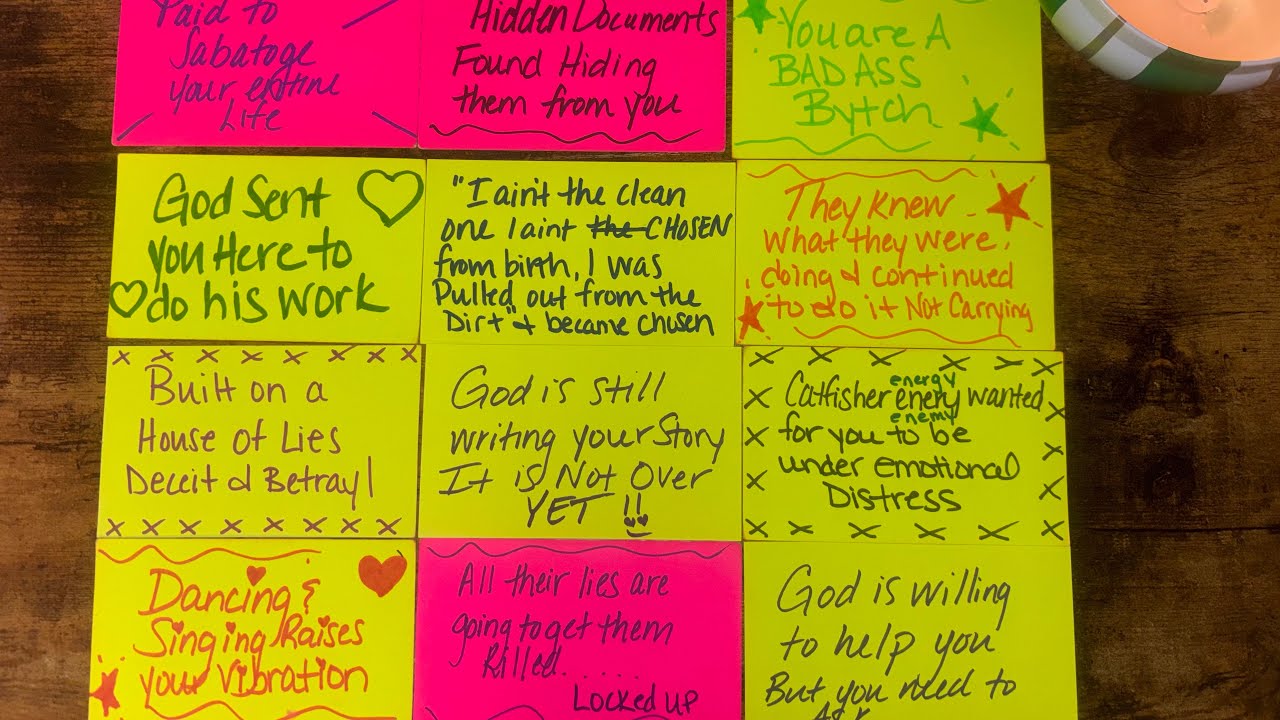 Paid to
Sabatoge
your entine
Life
Hidden Documents
Found Hiding
them from you
You are A
BAD ASS
Bytch
God Sent
you Here to
do his work
"I ain't the clean
one I aint the CHOSEN
from birth, I was
Pulled out from the
Dirt" & became chusen
They knew
what they were
doing & continued
to do it Not Carrying
Built on a
House of Lies
Deceit & Betrayl
God is still
writing your Story
It is Not Over
YET !!
energy
Catfisher enery wanted
enemy
for you to be
under emotional
Distress
Dancing &
Singing Raises
your Vibration
All their lies are
going to get them
Killed.....
Locked up
God is willing
to help you
But you need to
Ask